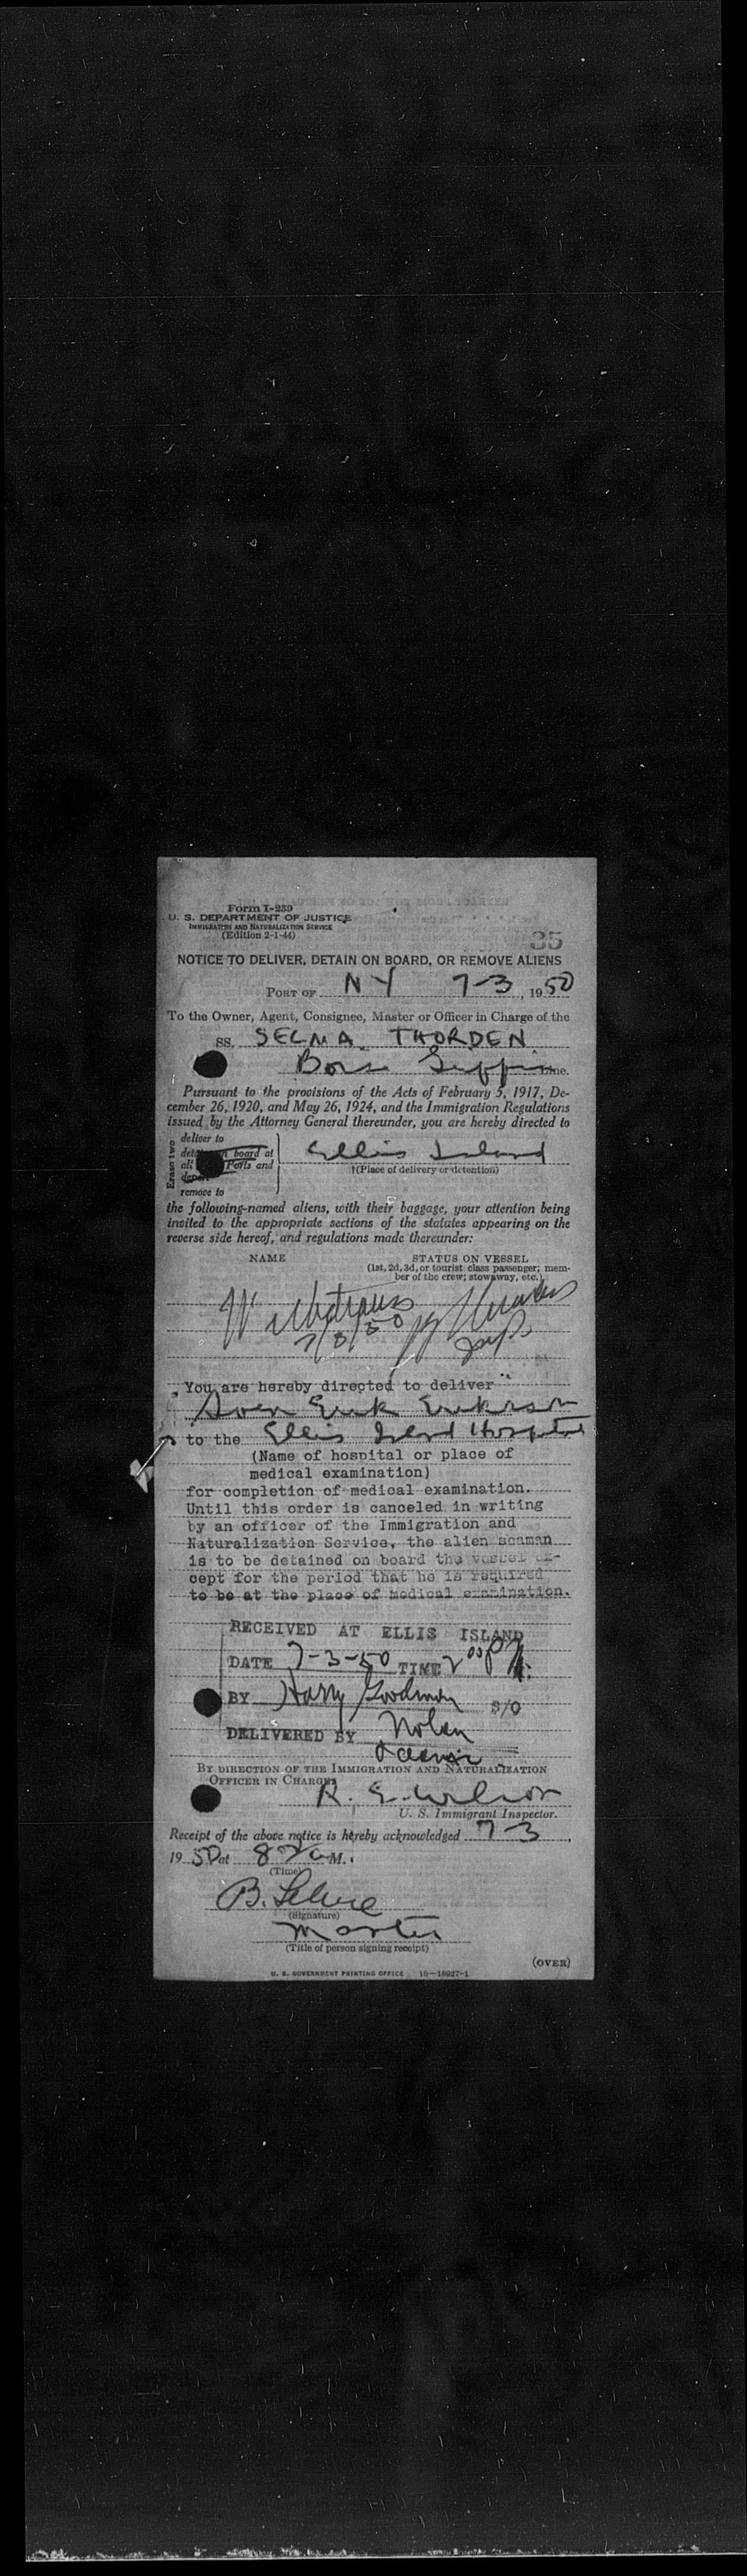 Form I-259
U. S. DEPARTMENT OF JUSTICE
IMMIGRATION AND NATURALIZATION SERVICE
(Edition 2-1-44)
35
NOTICE TO DELIVER, DETAIN ON BOARD, OR REMOVE ALIENS
PORT OF NY 7-3, 1950
To the Owner, Agent, Consignee, Master or Officer in Charge of the
SS. SELMA THORDEN
Line.
Pursuant to the provisions of the Acts of February 5, 1917, De-
cember 26, 1920, and May 26, 1924, and the Immigration Regulations
issued by the Attorney General thereunder, you are hereby directed to
Erase two
deliver to
board at
Ports and
remove to
Ellis Island
†(Place of delivery or detention)
the following-named aliens, with their baggage, your attention being
invited to the appropriate sections of the statutes appearing on the
reverse side hereof, and regulations made thereunder:
NAME STATUS ON VESSEL
(1st, 2d, 3d, or tourist class passenger; mem-
ber of the crew; stowaway, etc.)
7/3/50
You are hereby directed to deliver
Sven Erik Erikson
to the Ellis Island Hospital
(Name of hospital or place of
medical examination)
for completion of medical examination.
Until this order is canceled in writing
by an officer of the Immigration and
Naturalization Service, the alien seaman
is to be detained on board the vessel ex-
cept for the period that he is required
to be at the place of medical examination.
RECEIVED AT ELLIS ISLAND
DATE 7-3-50 TIME 2 00 P M.
BY Harry Goodman S/O
DELIVERED BY Nolan
BY DIRECTION OF THE IMMIGRATION AND NATURALIZATION
OFFICER IN CHARGE
R. E. Wilson
U. S. Immigrant Inspector.
Receipt of the above notice is hereby acknowledged 7-3,
1950 at 8 A M.
(Time)
B.
(Signature)
Master
(Title of person signing receipt)
(OVER)
U. S. GOVERNMENT PRINTING OFFICE 16-18027-1